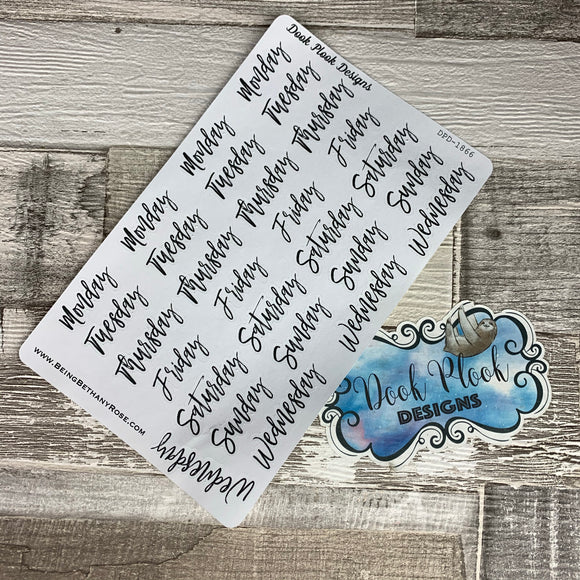 Dook Plook Designs
DPD-1866
Monday Monday Monday Monday
Tuesday Tuesday Tuesday Tuesday
Thursday Thursday Thursday Thursday
Friday Friday Friday Friday
Saturday Saturday Saturday Saturday
Sunday Sunday Sunday Sunday
Wednesday Wednesday Wednesday
Wednesday
www.BeingBethanyRose.com
Dook Plook
DESIGNS